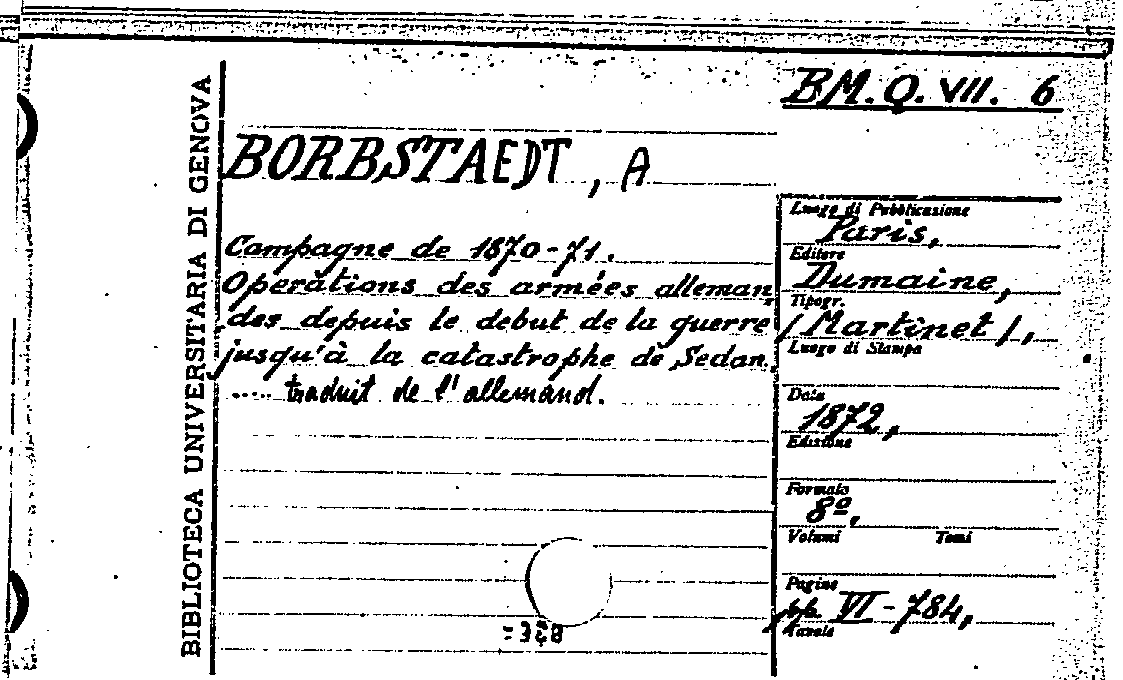 BIBLIOTECA UNIVERSITARIA DI GENOVA
BM.Q.VII. 6
BORBSTAEDT, A
Campagne de 1870-71.
Opérations des armées alleman
des depuis le debut de la guerre
jusqu'à la catastrophe de Sedan.
..... traduit de l'allemand.
Luogo di Pubblicazione
Paris,
Editore
Dumaine,
Tipogr.
/Martinet/,
Luogo di Stampa
Data
1872,
Edizione
Formato
8º,
Volumi Tomi
Pagine
pp. VI-784,
Tavole